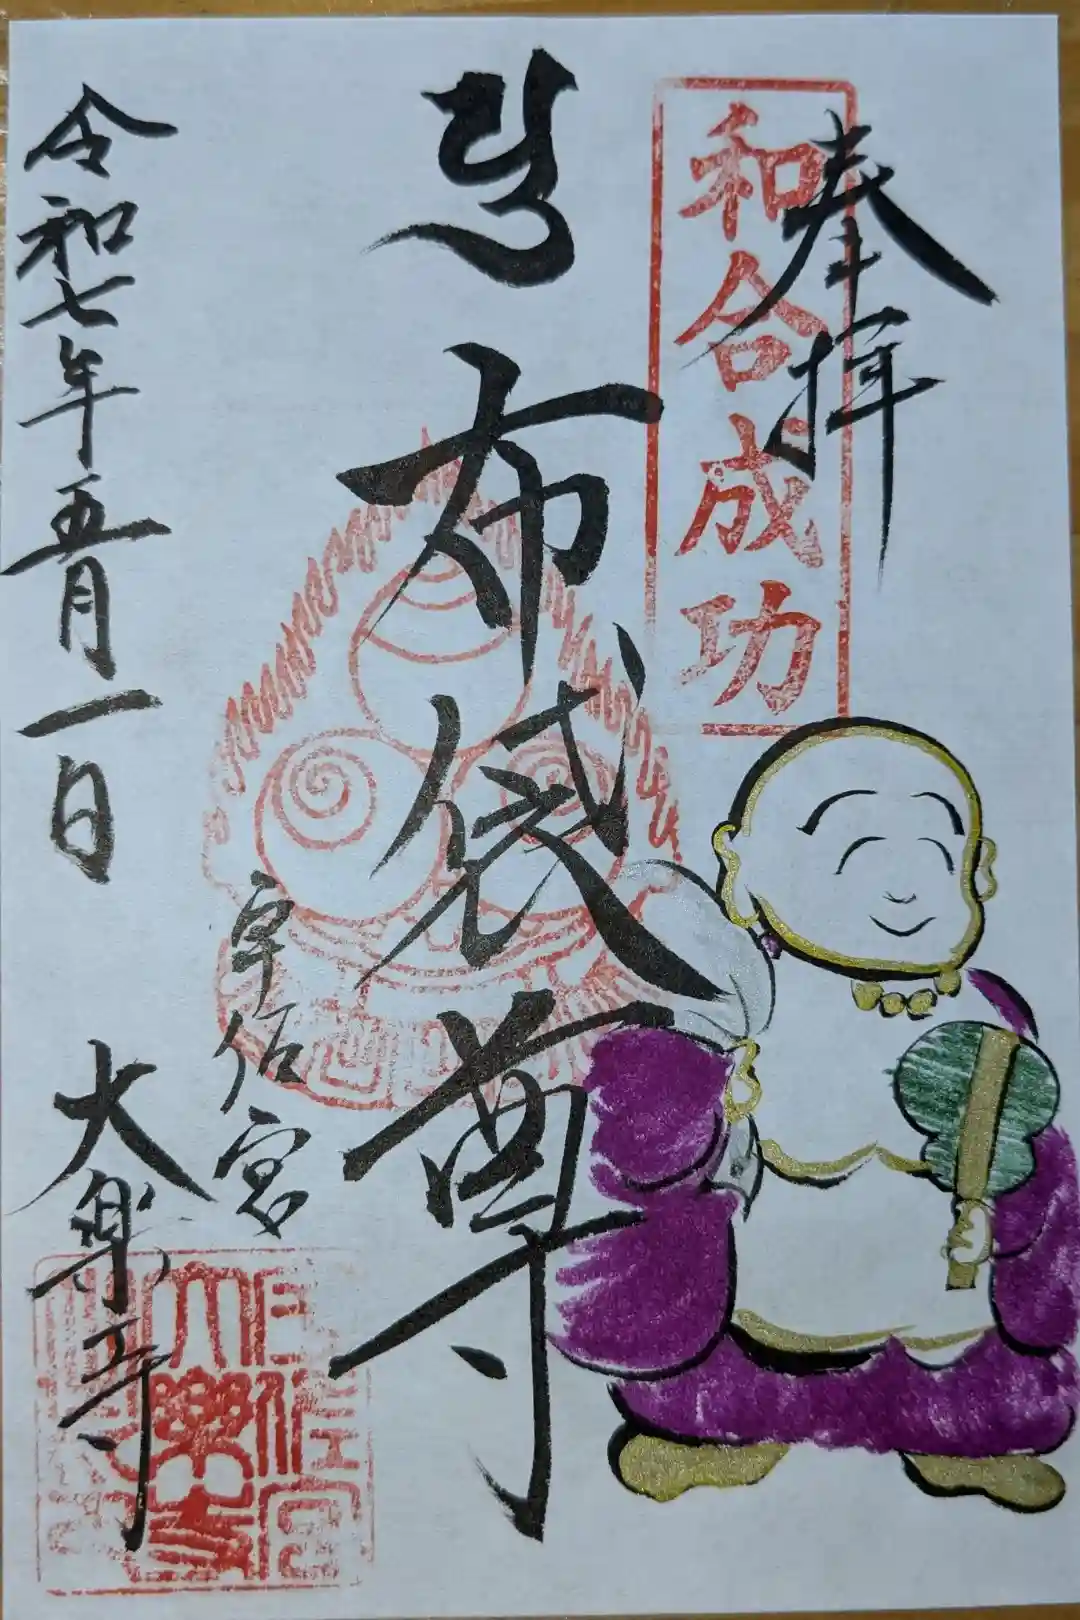 奉拝
和合成功
布袋尊
宇佐宮
令和七年五月一日
大楽寺